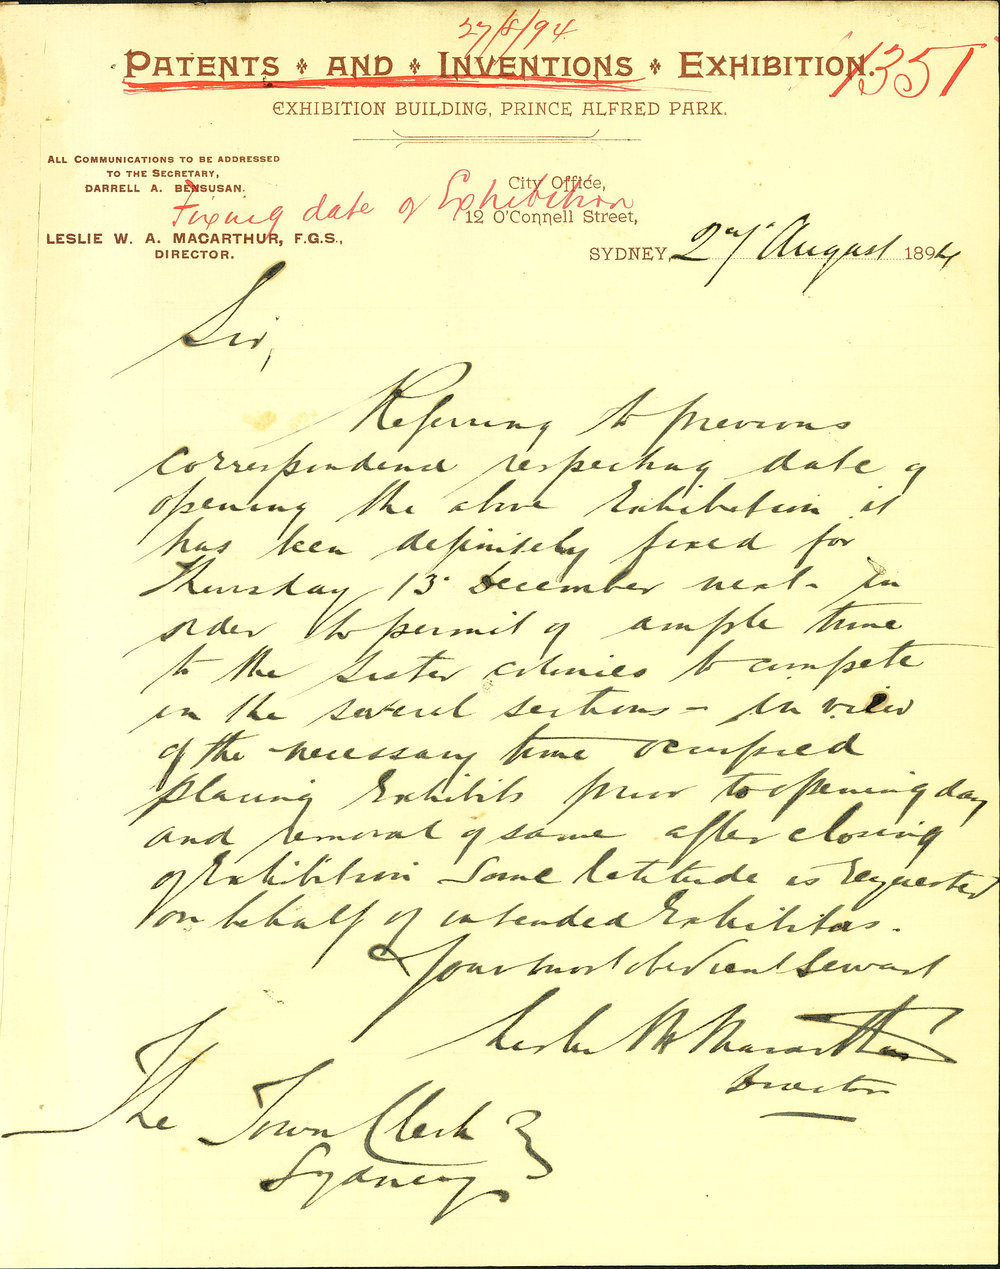 27/8/94
PATENTS AND INVENTIONS EXHIBITION.
1351
EXHIBITION BUILDING, PRINCE ALFRED PARK.
ALL COMMUNICATIONS TO BE ADDRESSED
TO THE SECRETARY,
DARRELL A. BENSUSAN.
LESLIE W. A. MACARTHUR, F.G.S.,
DIRECTOR.
Fixing date of Exhibition
City Office,
12 O'Connell Street,
SYDNEY, 27 August 1894
Sir,
Referring to previous
correspondence respecting date of
opening the above Exhibition it
has been definitely fixed for
Thursday 13 December next - in
order to permit of ample time
to the sister colonies to compete
in the several sections - in view
of the necessary time occupied
placing Exhibits prior to opening day
and removal of same after closing
of Exhibition some latitude is requested
on behalf of intended Exhibitors.
Your most obedient Servant
Leslie W Macarthur
Director
The Town Clerk
Sydney